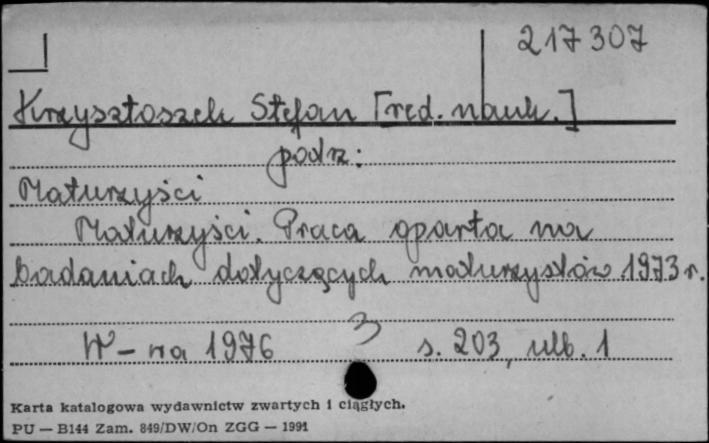 217307
Krzysztoszek Stefan [red. nauk.]
podz:
Maturzyści
Maturzyści. Praca oparta na
badaniach dotyczących maturzystów 1973 r.
3
W-wa 1976 s. 203, ulb. 1
Karta katalogowa wydawnictw zwartych i ciągłych.
PU — B144 Zam. 849/DW/On ZGG — 1991